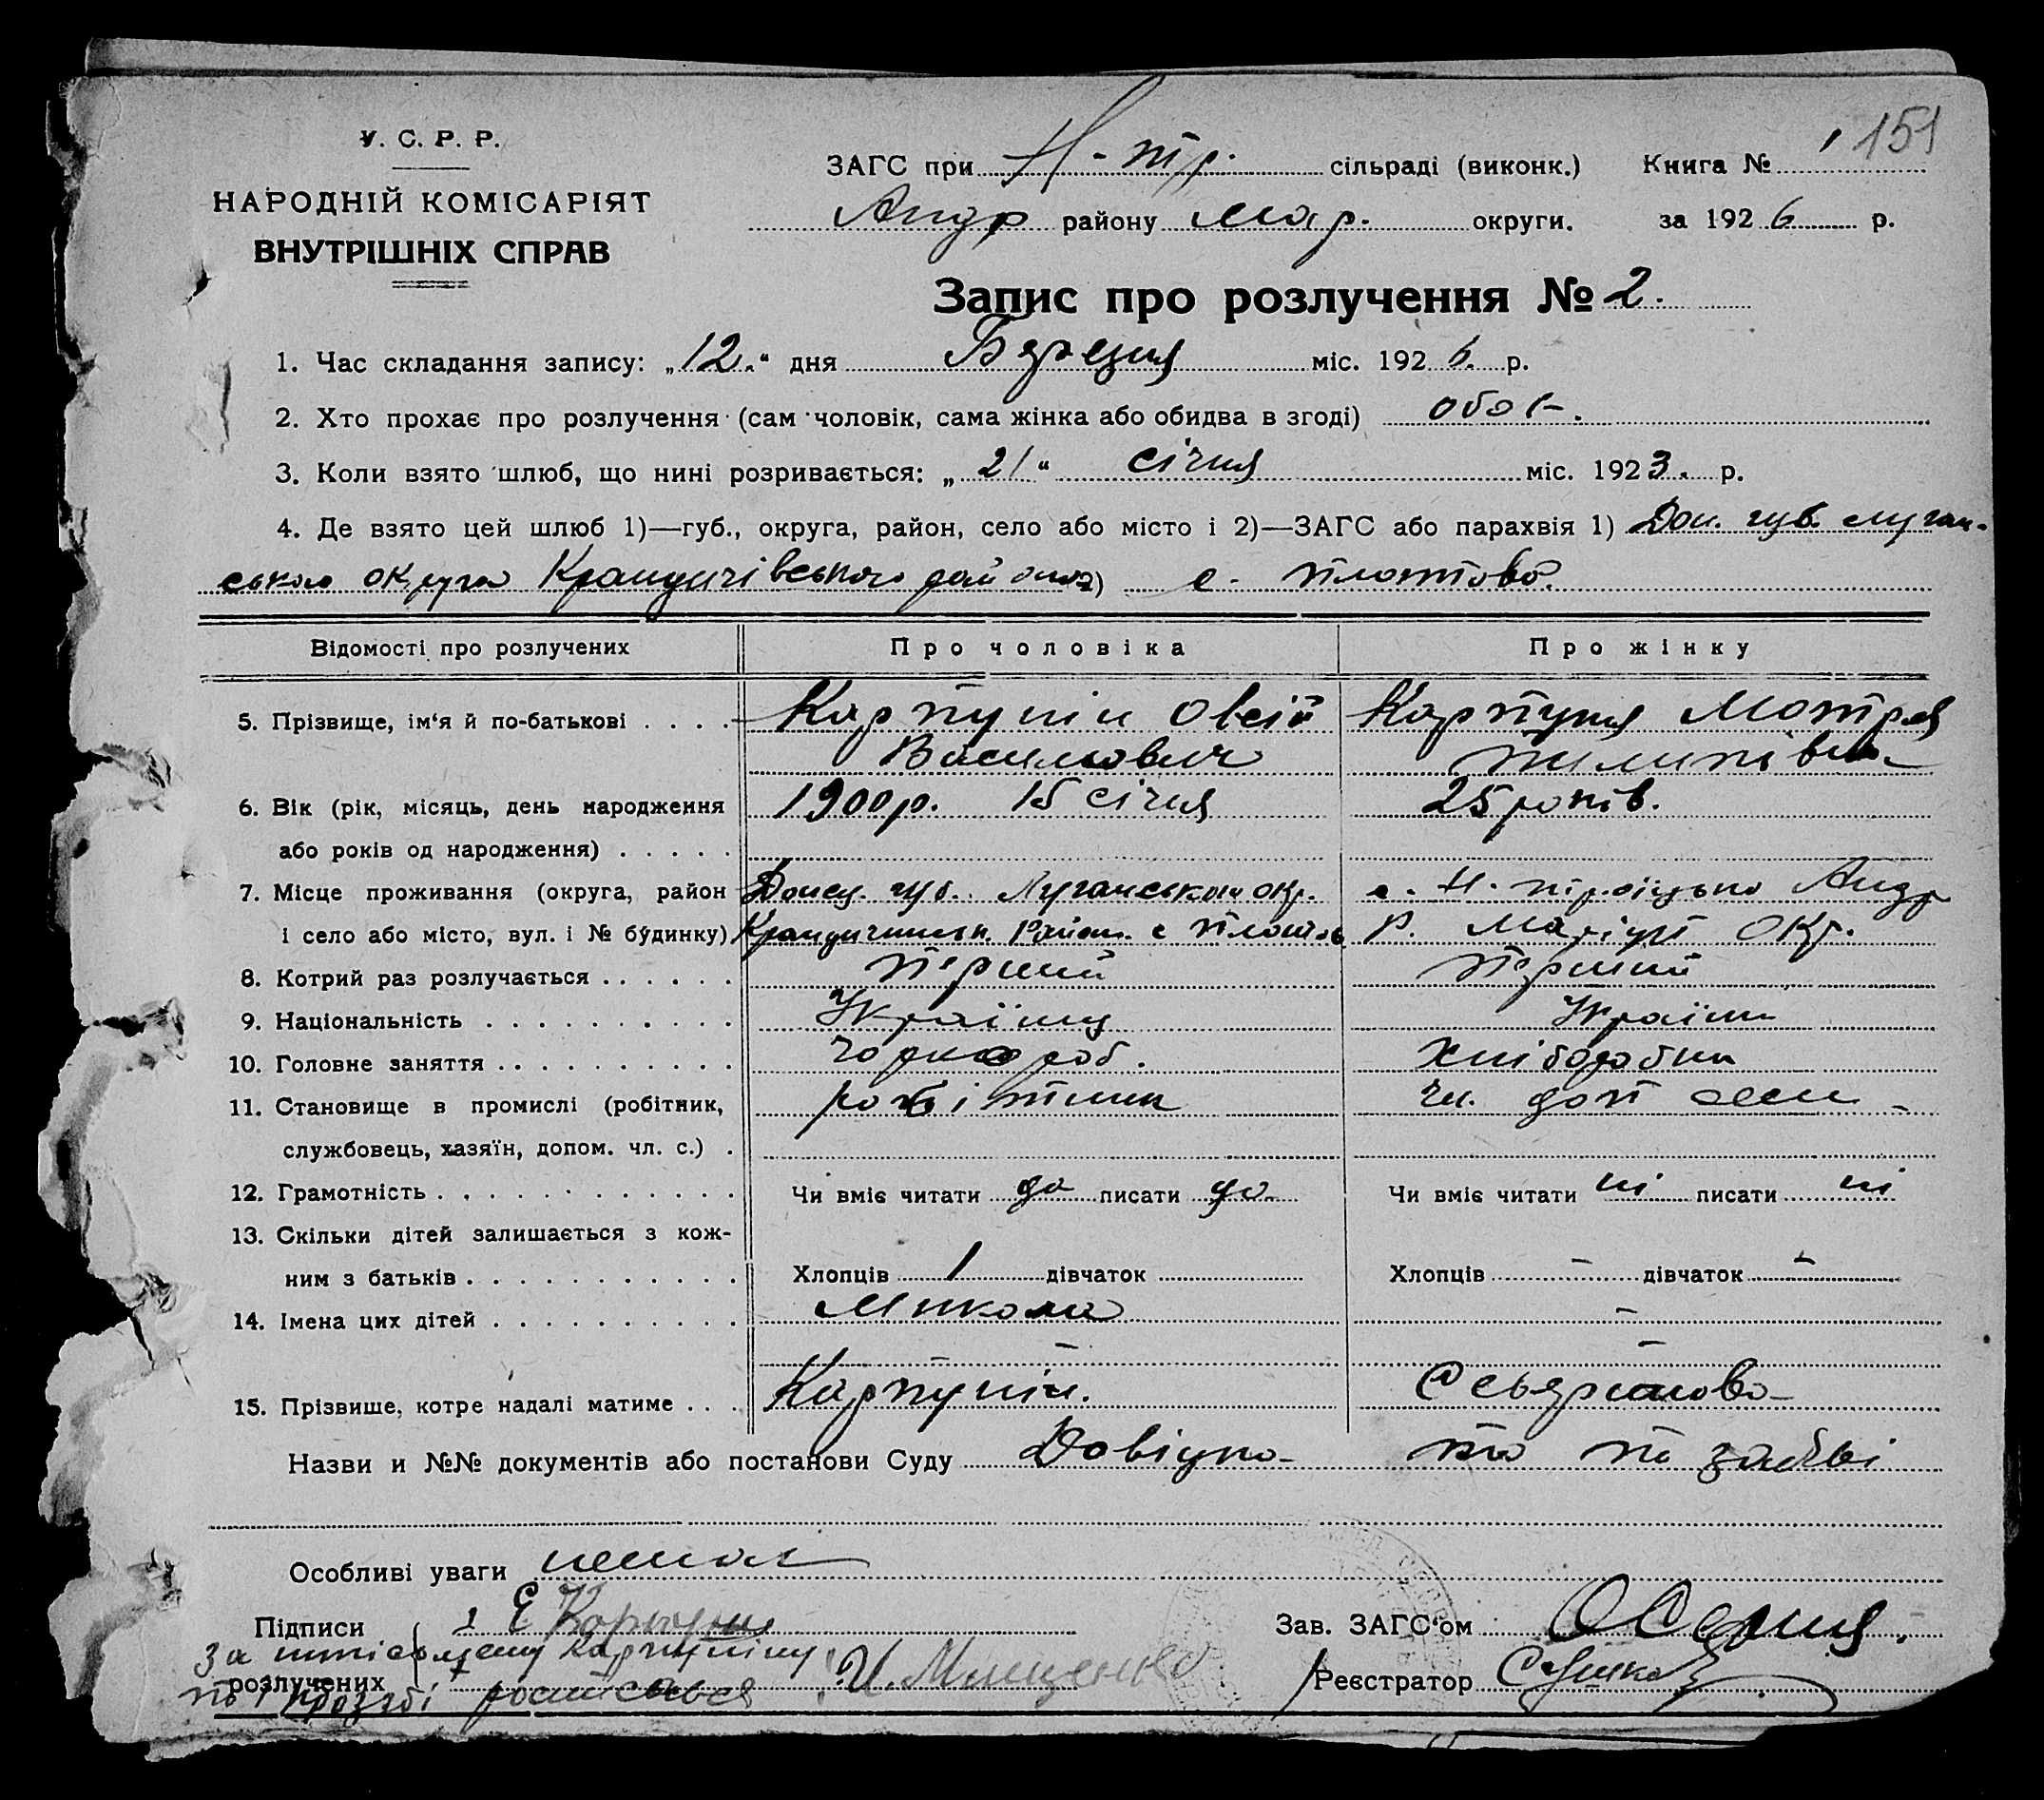 151
У. С. Р. Р.
НАРОДНІЙ КОМІСАРІЯТ
ВНУТРІШНІХ СПРАВ
ЗАГС при Н-тр. сільраді (виконк.) Книга №
Андр району Мар. округи. за 1926 р.
Запис про розлучення № 2.
1. Час складання запису: „12.“ дня Березня міс. 1926. р.
2. Хто прохає про розлучення (сам чоловік, сама жінка або обидва в згоді)
3. Коли взято шлюб, що нині розривається: „21“ січня міс. 1923. р.
4. Де взято цей шлюб 1)—губ., округа, район, село або місто і 2)—ЗАГС або парахвія 1) Дон. губ. Луган-
ської округа район 2) с.
Відомості про розлучених Про чоловіка Про жінку
5. Прізвище, ім‘я й по-батькові . . . . Карпунін Овсій Карпуня Мотря
Василювич Пилипівна
6. Вік (рік, місяць, день народження 1900р. 15 січня 25 років.
або років од народження) . . . . .
7. Місце проживання (округа, район Донец. губ. Луганськои окр. с. Н. Троїцько Андр
і село або місто, вул. і № будинку) Район. с Р. Маріуп окр.
8. Котрий раз розлучається . . . . . . Перший Перший
9. Національність . . . . . . . . . . Українц Україн
10. Головне заняття . . . . . . . . . . чорнороб. Хліборобка
11. Становище в промислі (робітник, робітник чл. доп сем
службовець, хазяїн, допом. чл. с.) .
12. Грамотність . . . . . . . . . . . . Чи вміє читати да писати да Чи вміє читати ні писати ні
13. Скільки дітей залишається з кож-
ним з батьків . . . . . . . . . . . Хлопців 1 дівчаток Хлопців - дівчаток -
14. Імена цих дітей . . . . . . . . . . Микола -
- -
15. Прізвише, котре надалі матиме . . . Карпунін.
Назви и №№ документів або постанови Суду Довідка та по заяві
Особливі уваги немає
Підписи 1 Е Карпунін Зав. ЗАГС‘ом
за Карпуніну
розлучених И. Мищенко Реєстратор